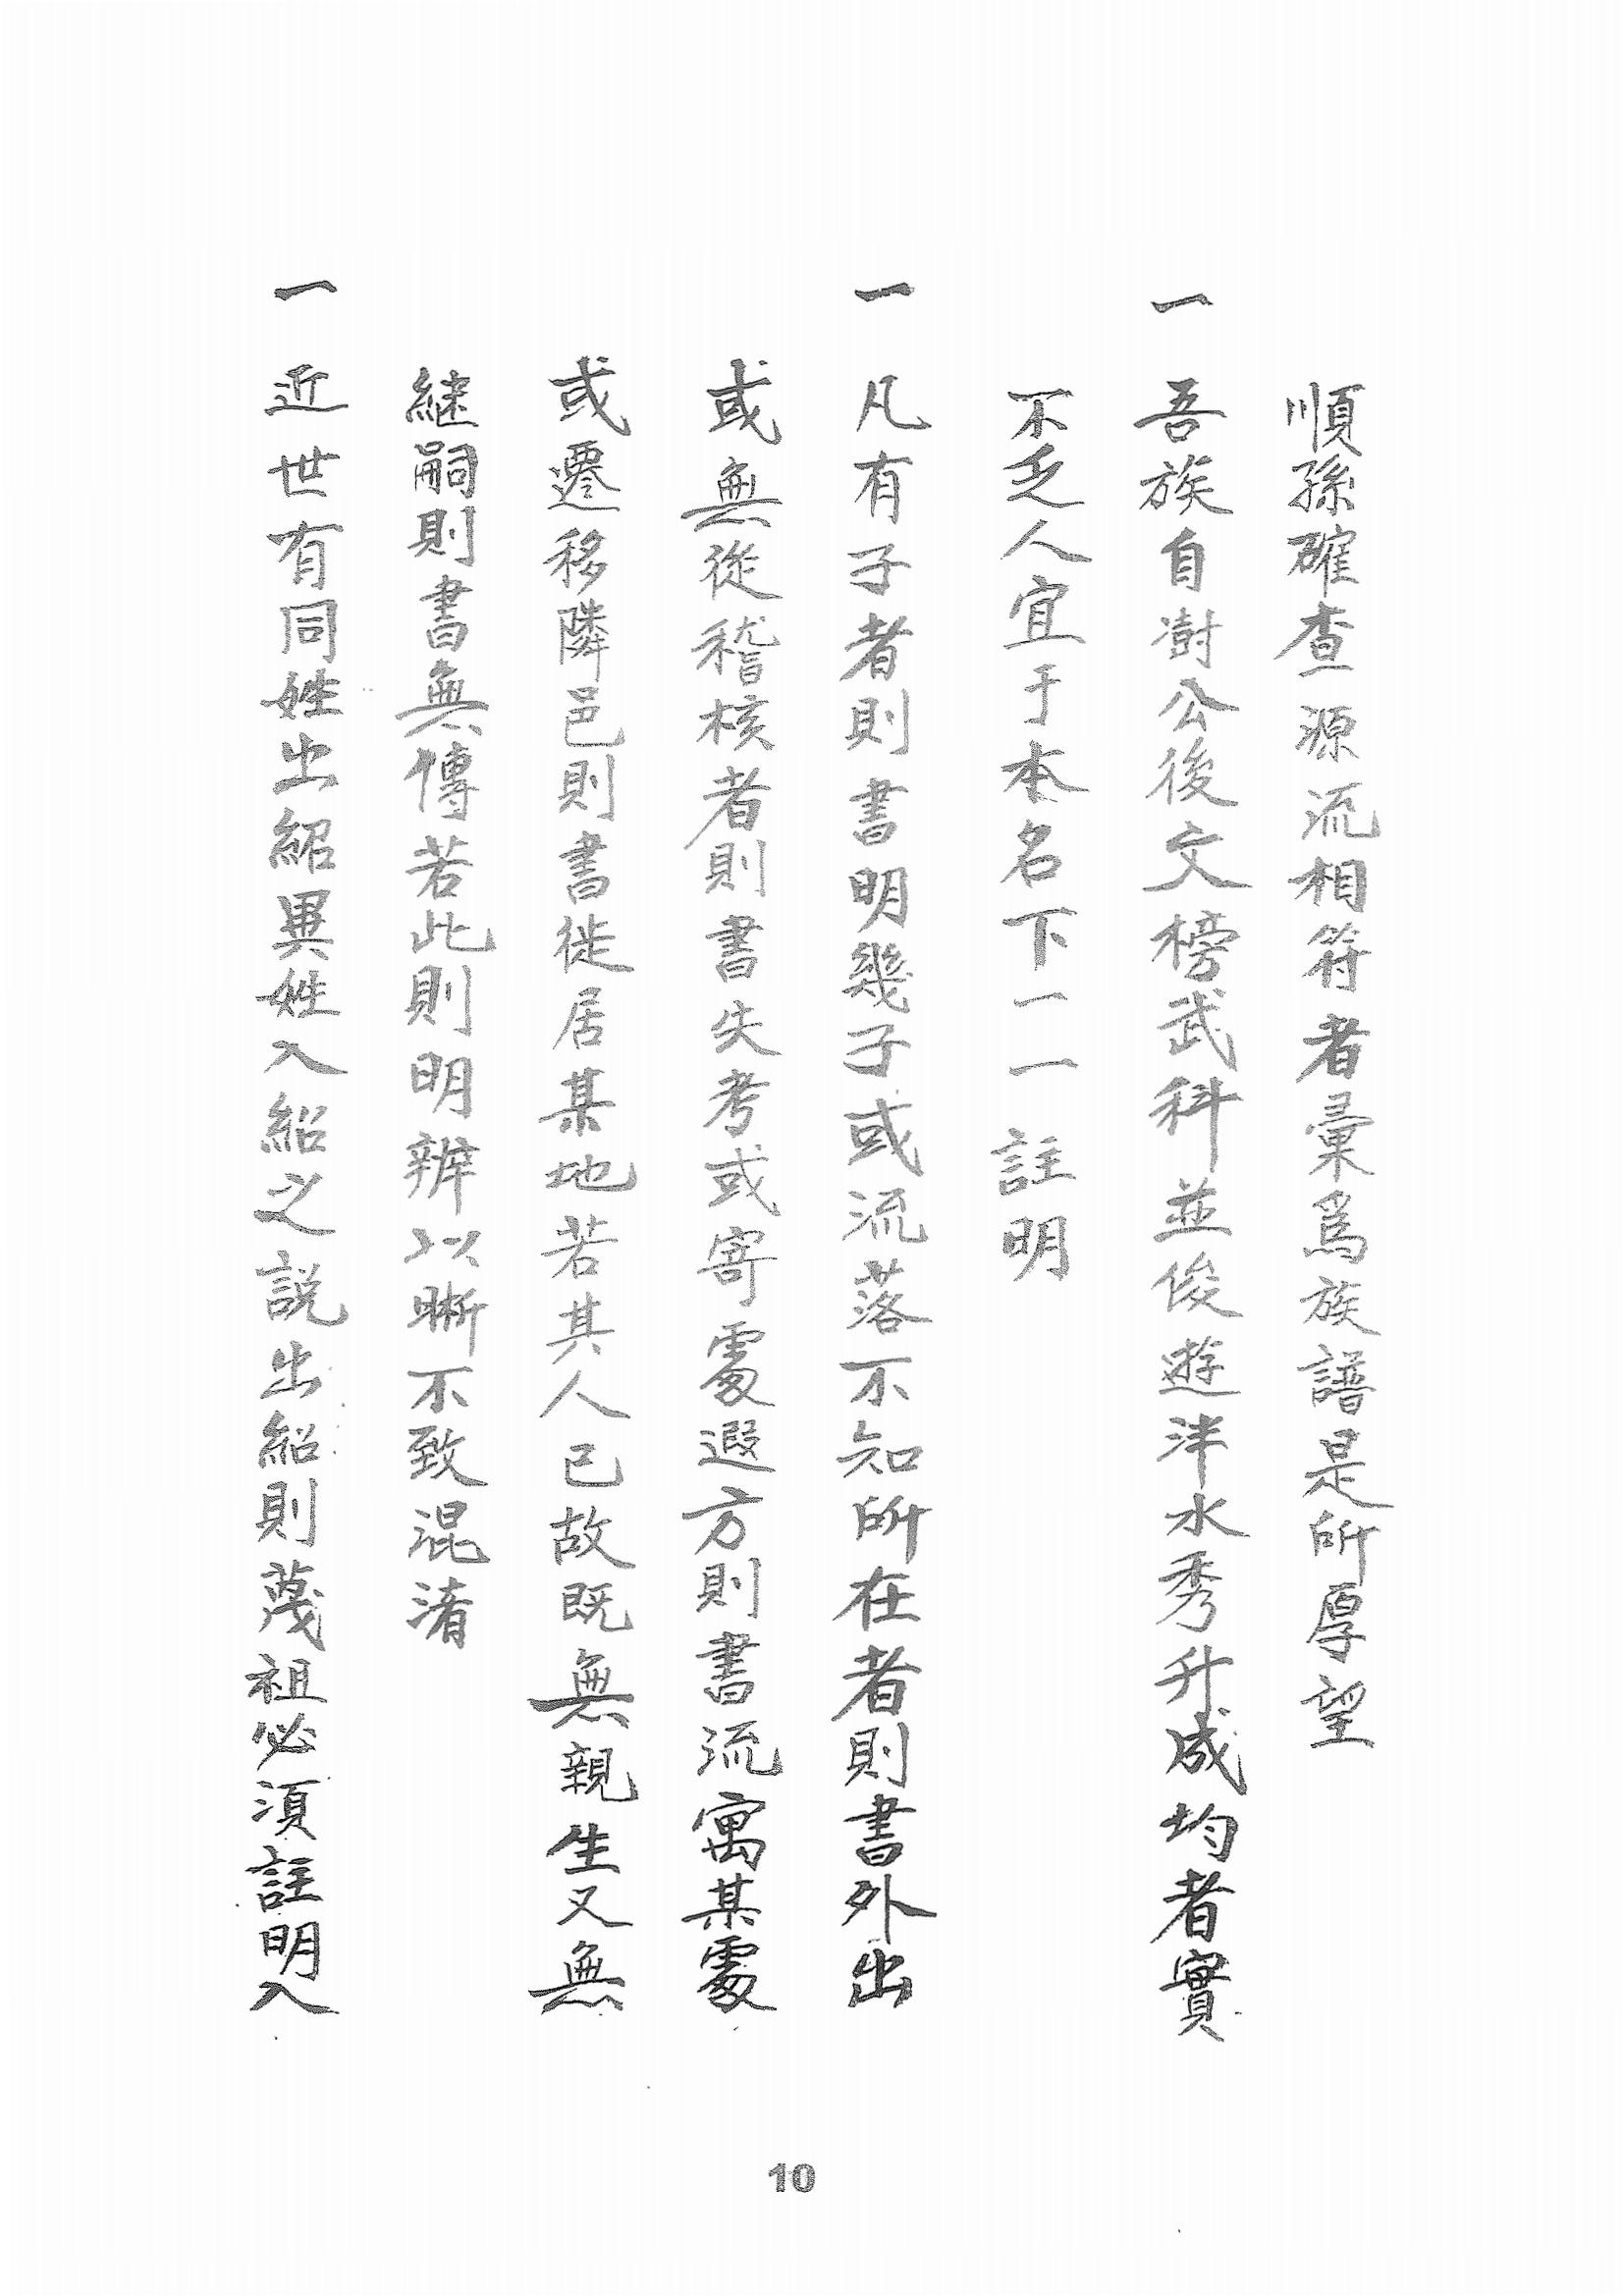 順孫確查源流相符者彙爲族譜是所厚望
一 吾族自樹公後文榜武科並俊遊泮水秀升成均者實
不乏人宜于本名下一一註明
一 凡有子者則書明幾子或流落不知所在者則書外出
或無從稽核者則書失考或寄處遐方則書流寓某處
或遷移隣邑則書徙居某地若其人已故既無親生又無
継嗣則書無傳若此則明辨以晣不致混淆
一 近世有同姓出紹異姓入紹之説出紹則蔑祖必須註明入
10